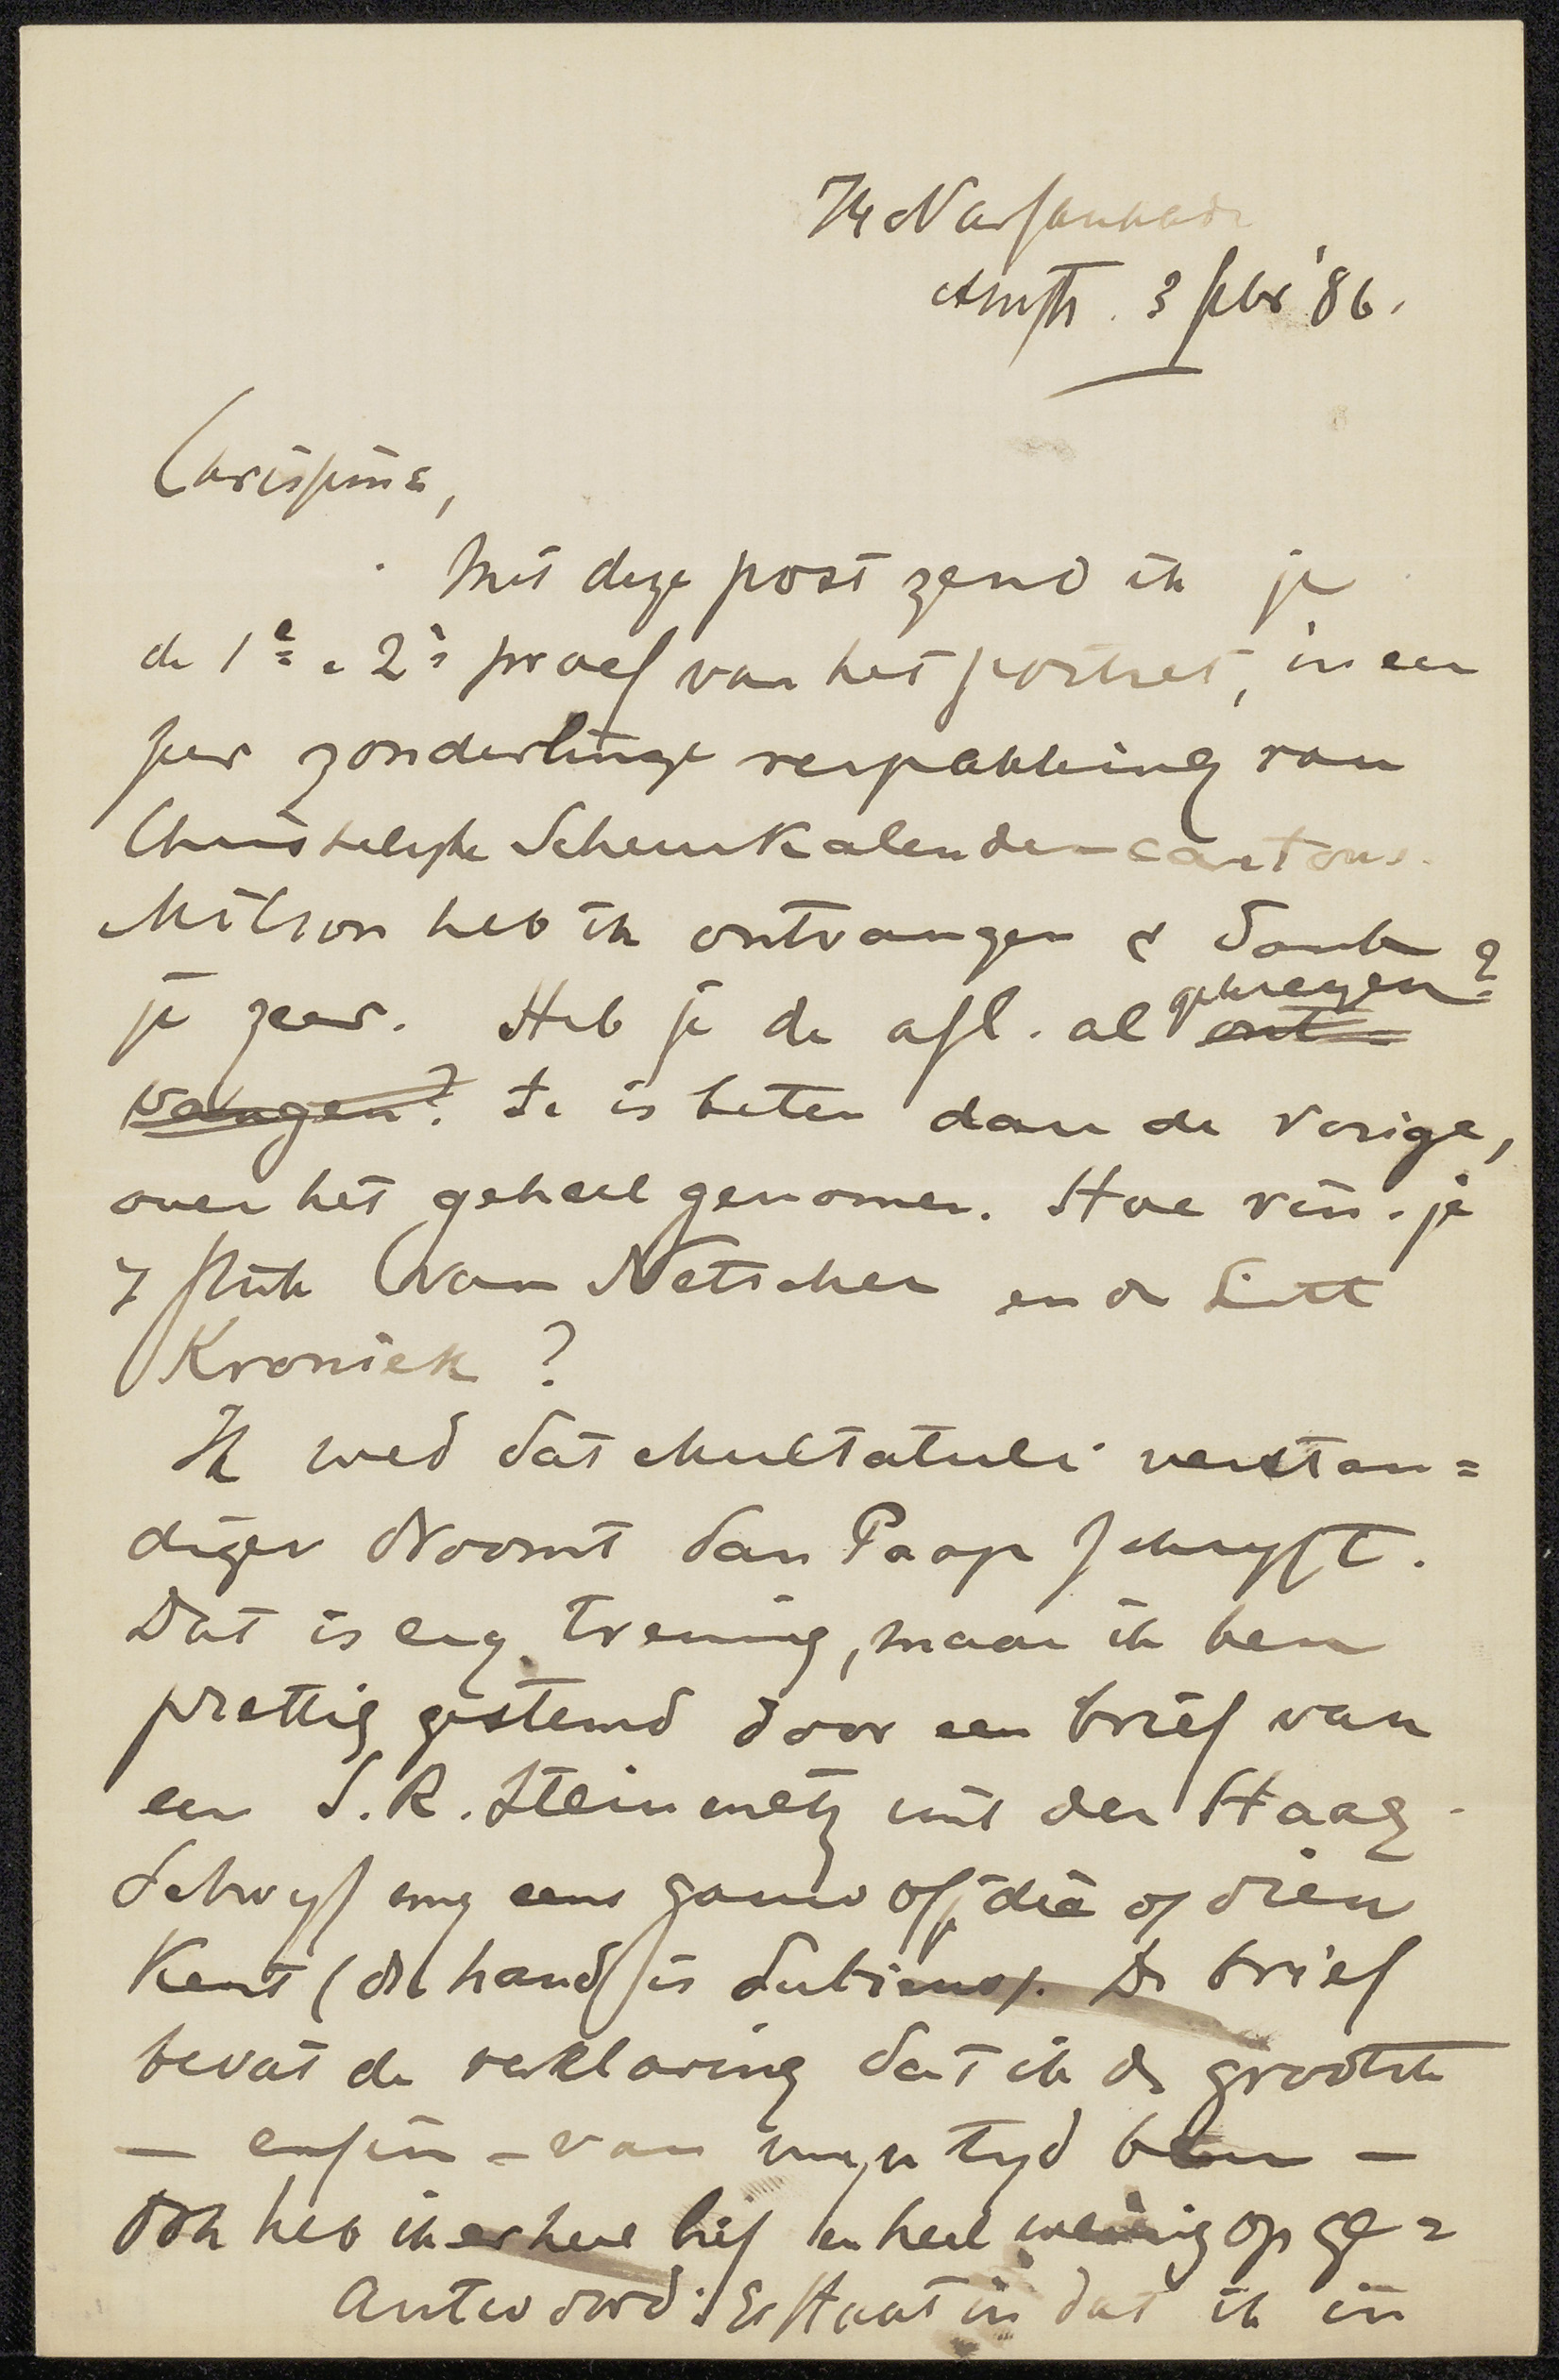 74 Nassaukade
Amst. 3 febr '86.
Carissime,
Met deze post zend ik je
de 1e e 2e proef van het portret, in een
zeer zonderlinge verpakking van
Christelyke Scheurkalender-cartons.
Milton heb ik ontvangen & dank
je zeer. Heb je de afl. al gekregen?
ont-
vangen? Ze is beter dan de vorige,
over het geheel genomen. Hoe vin-je
't stuk van Netscher en de Litt
Kroniek?
Ik wed dat Multatuli verstan=
diger Noomt dan Paap schryft.
Dat is erg treurig, maar ik ben
prettig gestemd door een brief van
een S. R. Steinmetz uit den Haag.
Schryf my eens gauw of je die of dien
Kent (de hand is dubieus). De brief
bevat de verklaring dat ik de grootste
— enfin – van myn tyd ben —
Ook heb ik er heel lief en heel weinig op ge=
antwoord: Er staat in dat ik in